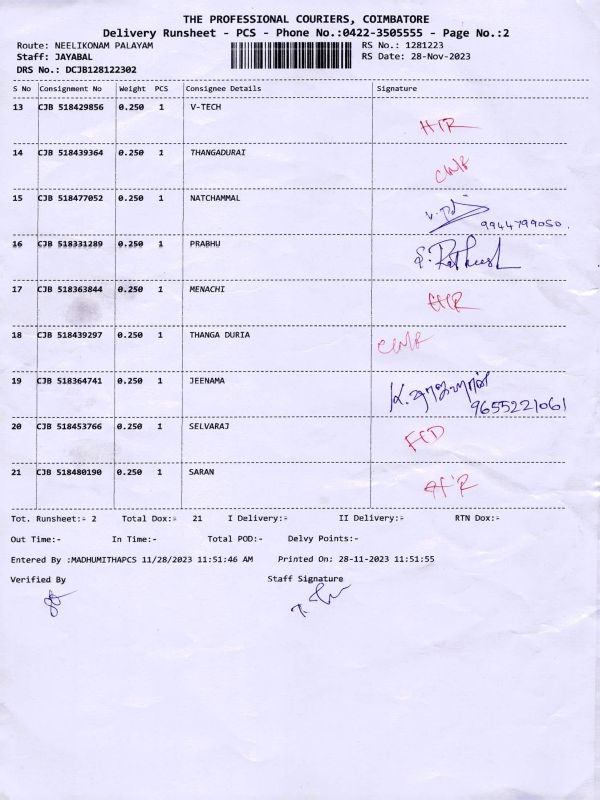 THE PROFESSIONAL COURIERS, COIMBATORE
Delivery Runsheet - PCS - Phone No.:0422-3505555 - Page No.:2
Route: NEELIKONAM PALAYAM RS No.: 1281223
Staff: JAYABAL RS Date: 28-Nov-2023
DRS No.: DCJB128122302
S No Consignment No Weight PCS Consignee Details Signature
13 CJB 518429856 0.250 1 V-TECH
14 CJB 518439364 0.250 1 THANGADURAI
15 CJB 518477052 0.250 1 NATCHAMMAL
9944799050.
16 CJB 518331289 0.250 1 PRABHU
17 CJB 518363844 0.250 1 MENACHI
18 CJB 518439297 0.250 1 THANGA DURIA
19 CJB 518364741 0.250 1 JEENAMA
9655221061
20 CJB 518453766 0.250 1 SELVARAJ
21 CJB 518480190 0.250 1 SARAN
Tot. Runsheet:- 2 Total Dox:- 21 I Delivery:- II Delivery:- RTN Dox:-
Out Time:- In Time:- Total POD:- Delvy Points:-
Entered By :MADHUMITHAPCS 11/28/2023 11:51:46 AM Printed On: 28-11-2023 11:51:55
Verified By Staff Signature